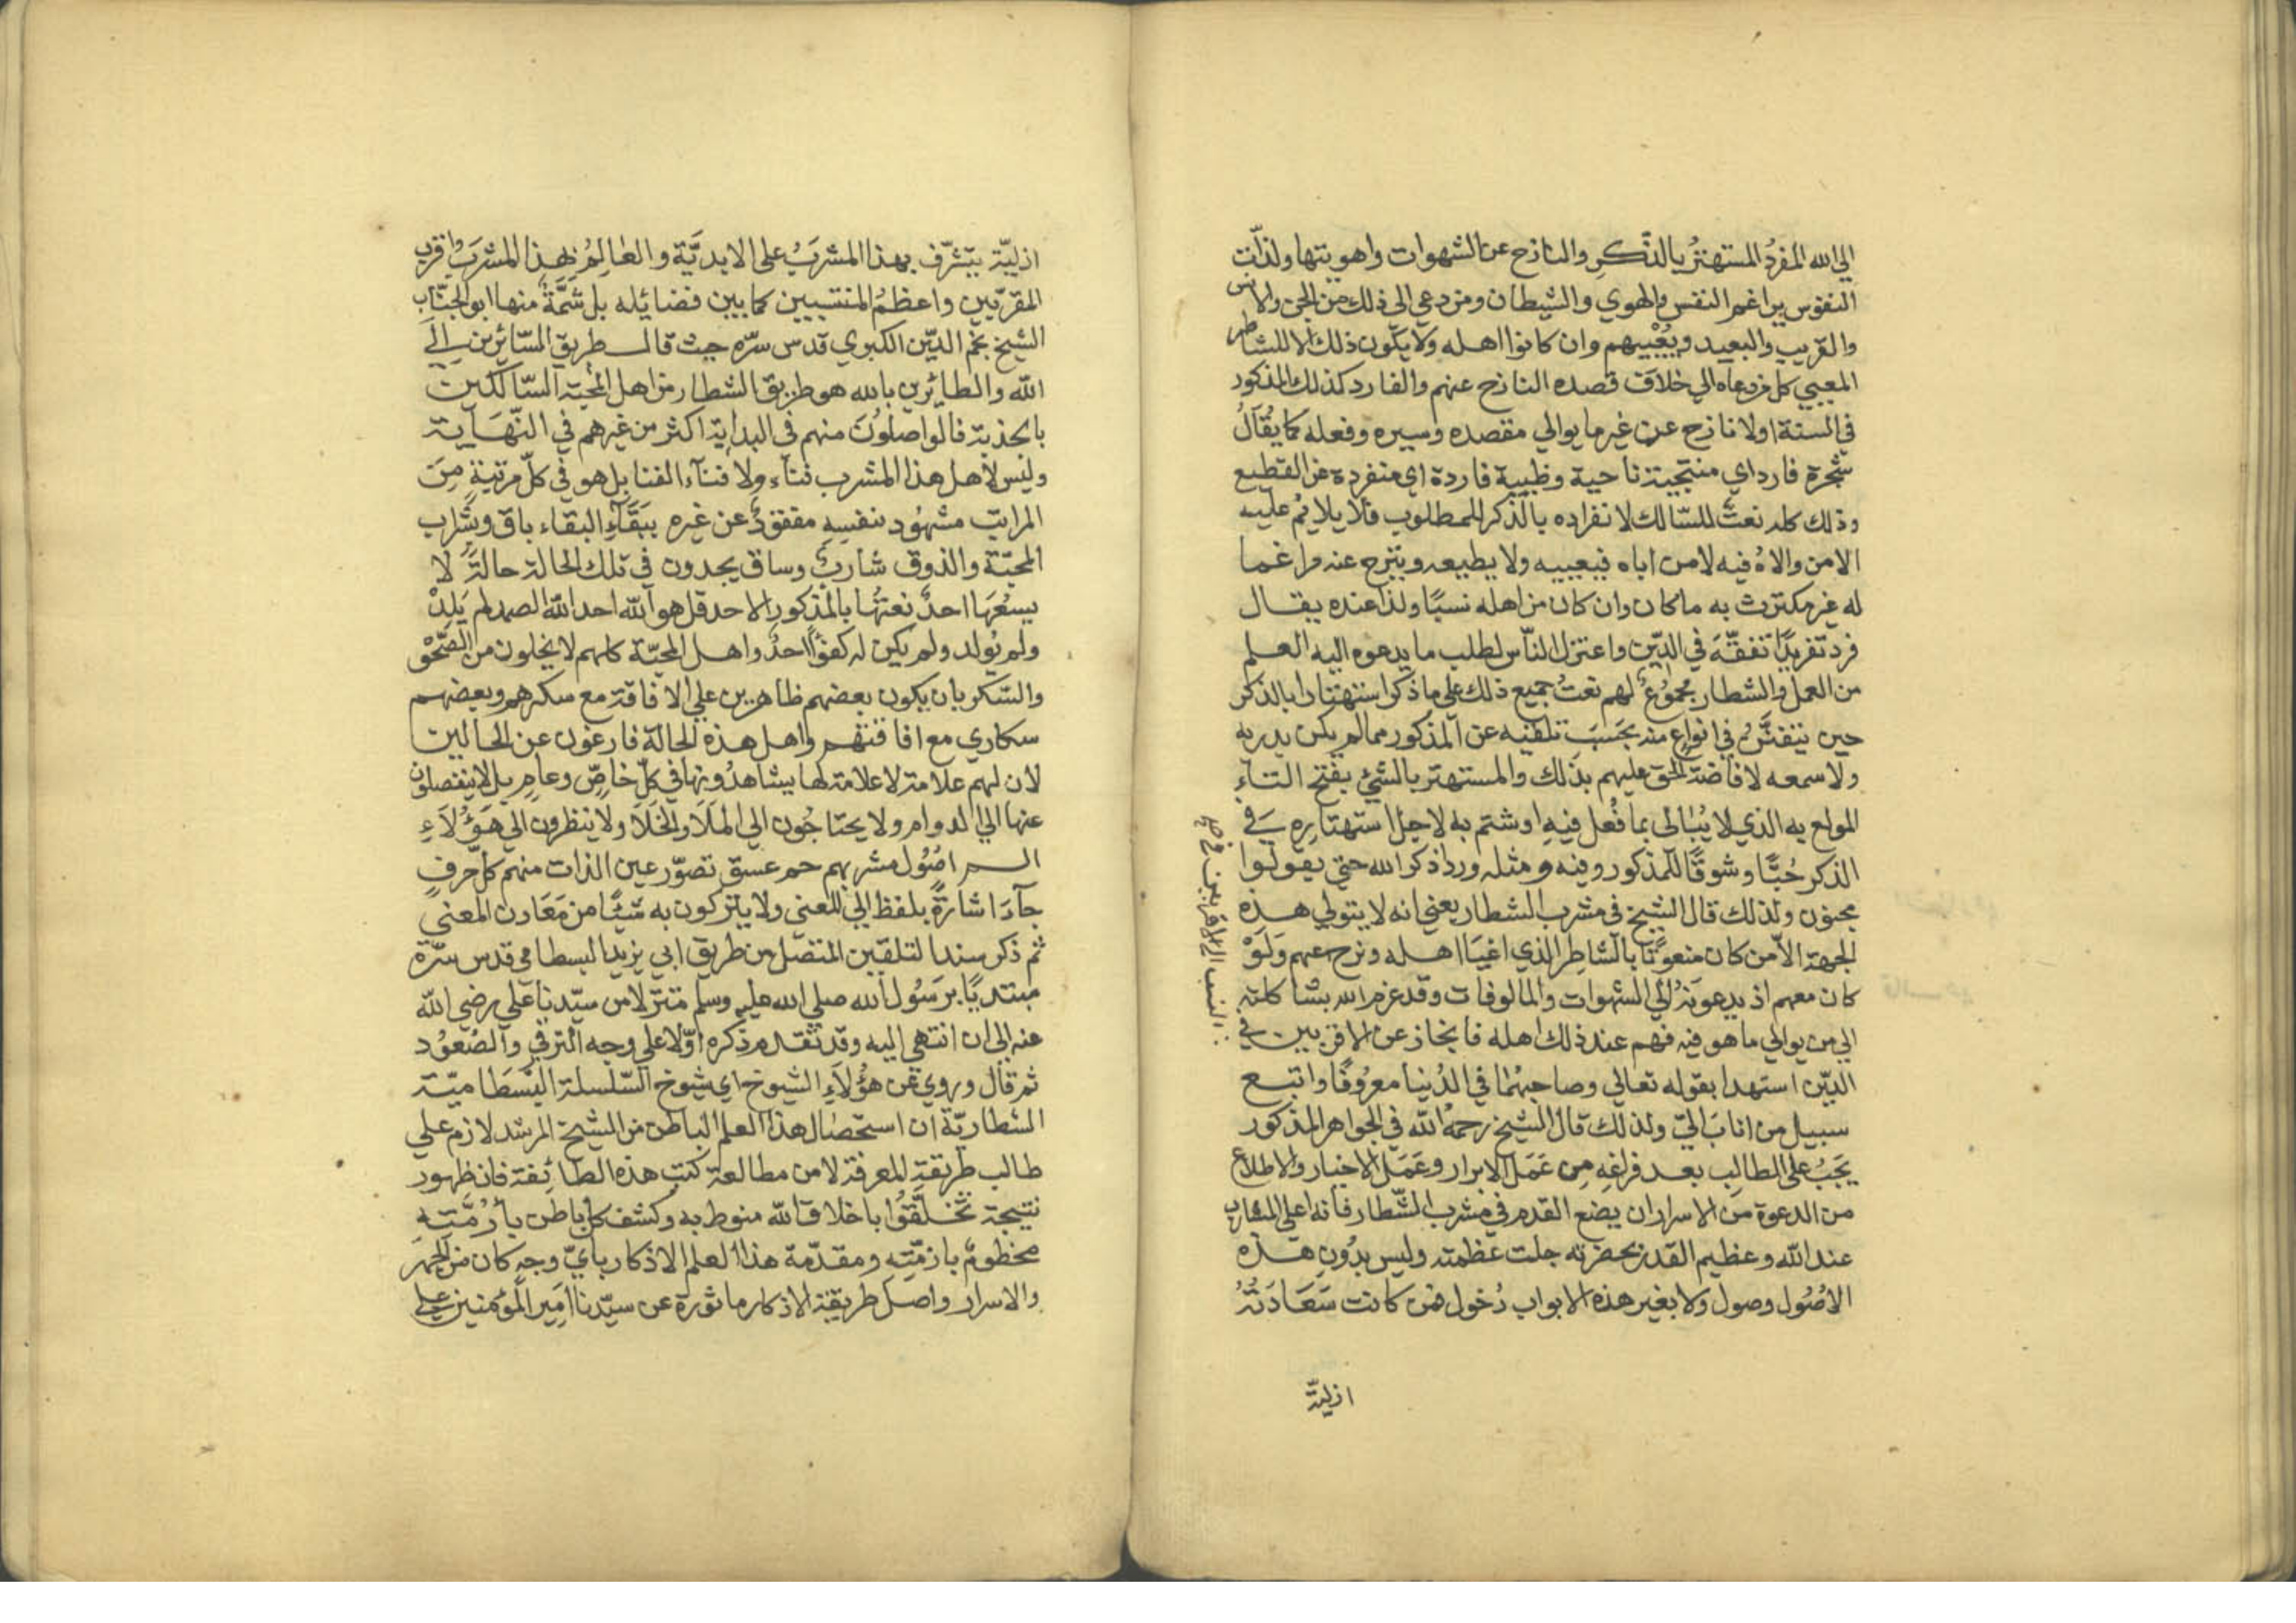 الي الله المفرد المستهتر بالذكر والنازح عن الشهوات واهويتها ولذّت
النفوس يراغم النفس والهوي والشيطان ومن دعي الي ذلك من الجن والانس
والقريب والبعيد ويعييهم وان كانوا اهله ولا يكون ذلك الا للشاطر
المعيي كل من دعاه الي خلاف قصده النازح عنهم والفارد كذلك المذكور
في السنة اولا نازح عن غير ما يوالي مقصده وسيره وفعله كما يُقالُ
شجرة فارد اي منتحية ناحية وظبية فاردة اي منفردة عن القطيع
وذلك كله نعتٌ للسّالك لانفراده بالذكر للمطلوب فلا يلايم عليه
الا من والاهُ فيه لا من اباه فيعييه ولا يطيعه وينزح عنه مراغما
له غير مكترث به ما كان وان كان من اهله نسبًا ولذا عنده يقال
فرد تفريدًا تفقّهَ في الدّين واعتزل النّاس لطلب ما يدعوه اليه العلم
من العمل والشطار مجموعٌ لهم نعتُ جميع ذلك علي ما ذكر استهتارا بالذكر
حين يتفنّن في انواعٍ منه بحسَب تلقيه عن المذكور مما لم يكن يدر به
ولا سمعه لافاضة الحق عليهم بذلك والمستهتر بالشئ بفتح التاءِ
المولع به الذي لا يُبالي بما فُعل فيه او شتم به لاجل استهتاره في
الذكر حُبًّا وشوقًا للمذكور وفيه ومثله ورد اذكر الله حتي يقولوا
مجنون ولذلك قال الشيخ في مشرب الشطار يعني انه لا يتولي هذه
الجهة الا من كان منعوتًا بالشاطر الذي اعيا اهله ونزح عنهم ولَوْ
كان معهم اذ يدعونَهُ الي الشهوات والمالوفات وقد عزم الله بشاكلته
الي من يوالي ما هو فيه فهم عند ذلك اهله فانحاز عن الاقربين في
الدّين استهدا بقوله تعالي وصاحبهُما في الدُنيا معرُوفًا واتبع
سبيل من انابَ اليّ ولذلك قال الشيخ رحمهُ الله في الجواهر المذكور
يَجبُ علي الطالِب بعد فراغِه مِن عَمَل الابرار وعَمَل الاخيار والاطلاع
من الدعوة من الاسرار ان يضع القدم في مشرب الشّطار فانه اعلي المشارب
عند الله وعظيم القدر بحضرته جلت عظمته وليس بدُونِ هذه
الاصُول وصول ولا بغير هذه الابواب دُخول فمن كانت سَعَادَتُهُ
ازليّة
ازليّة يتشرّف بهذا المشرَبُ علي الابديَّة والعالِمُ بهذا المشرَبُ اقرب
المقرّبين واعظمُ المنتسبين كما يبين فضائله بل شمَّةٌ منها ابو الجنّاب
الشيخ نجم الدّين الكبري قدس سرّه حيث قال طريق السّائرين الي
الله والطائرين بالله هو طريق الشطار من اهل المحبة السّالكين
بالجذبة فالواصلُونَ منهم في البداية اكثر من غيرهم في النّهَاية
وليس لاهل هذا المشرب فناء ولا فناء الفنا بل هو في كلّ مرتبةٍ مِنَ
المراتب مشهُود بنفسِه مفقودٌ عن غيره ببَقَاءِ البقاء باق وبشَراب
المحبّة والذوق شاربٌ وساق يجدون في تلك الحالة حالةً لا
يسعُهَا احدٌ نعتُها بالمذكور الاحد قل هو الله احد الله الصمد لم يَلِدْ
ولم يُولد ولم يكن له كفوًا احدٌ واهل المحبّة كلهم لا يخلون من الصّحْو
والسّكر بان يكون بعضهم ظاهرين علي الافاقة مع سكرهم وبعضهم
سكاري مع افاقتهم واهل هذه الحالة فارغون عن الحالين
لان لهم علامة لا علامة لها يشاهدُونها في كلّ خاصّ وعام بل لا ينفصلون
عنها الي الدوام ولا يحتاجُون الي الملَاَ والخلَاَ ولا ينظرون الي هَؤُلَاءِ
الم اصُول مشربهم حم عسق تصوّر عين الذات منهم كلّ حرفٍ
جاءَ اشارةً بلفظ الي المعني ولا يتركون به شيْئًا من مَعَادن المعني
ثم ذكر سند التلقين المتصل من طريق ابي يزيد البسطامي قدس سرّه
مبتديًا برسُول الله صلي الله عليه وسلم متنزلا من سيّدنا علي رضي الله
عنه الي ان انتهي اليه وقد تقدم ذكره اوّلا علي وجه الترقي والصُعوُد
ثم قال وروي عن هؤُلاَءِ الشيوخ اي شيوخ السّلسلة البَسطَاميّة
الشطاريّة ان استحصَال هذا العلم الباطن من الشيخ المرشد لازم علي
طالب طريقة المعرفة لا من مطالعة كتب هذه الطائِفة فان ظهور
نتيجة تخلَّقُوا باخلاق الله منوط به وكشف كل باطن بأَرُمَّتِهِ
مخطومٌ بازمّتِه ومقدّمة هذا العلم الاذكار بايّ وجهٍ كان من الجهر
والاسرار واصل طريقة الاذكار ماثورة عن سيّدنا امير المؤمنين علي